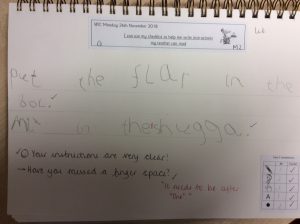 WC Monday 26th November 2018
I can use my checklist to help me write instructions
my teacher can read
M2
put the flar in the
bol.
Mix in the shugga.
Your instructions are very clear!
→ Have you missed a finger space?
"It needs to be after
'the'"
A